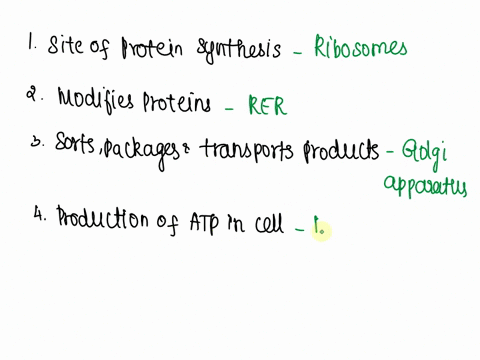 1. Site of Protein Synthesis - Ribosomes
2. Modifies Proteins - RER
3. Sorts, packages & transports products - Golgi
apparatus
4. Production of ATP in cell -